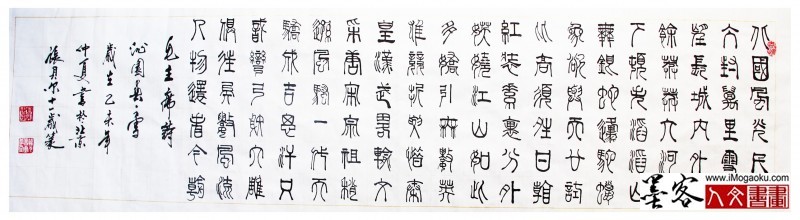 北國風光千里
冰封萬里雪飄
望長城內外惟
餘莽莽大河上
下頓失滔滔山
舞銀蛇原馳蠟
象欲與天公試
比高須晴日看
紅裝素裹分外
妖嬈江山如此
多嬌引無數英
雄競折腰惜秦
皇漢武略輸文
采唐宗宋祖稍
遜風騷一代天
驕成吉思汗只
識彎弓射大雕
俱往矣數風流
人物還看今朝
毛主席詩
沁園春雪
歲在乙未年
仲夏書於北京
張貝尔十歲筆
墨客
www.iMogaoku.com
人文書畫